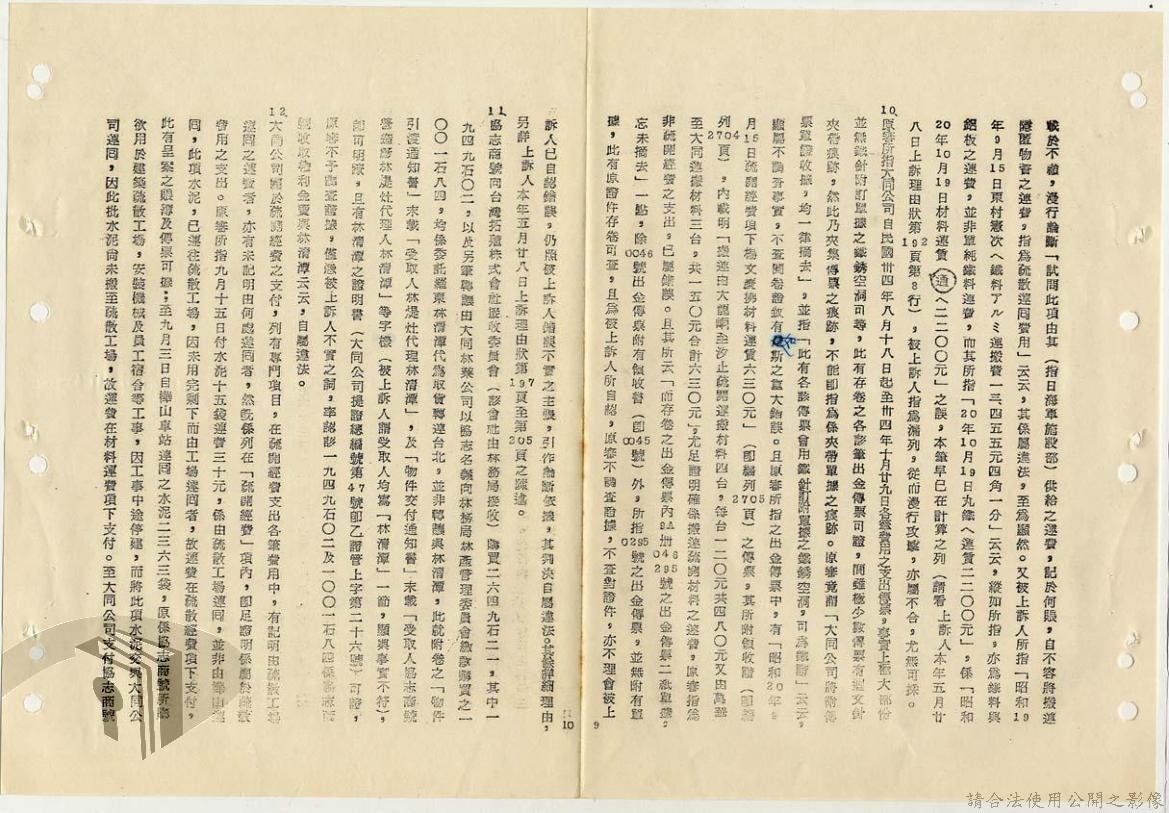 載於不顧，漫行論斷「試問此項由其（指日海軍施設部）供給之運費，記於何賬，自不容將搬運
隱匿物資之運費，指為疏散運回費用」云云，其係屬違法，至為顯然。又被上訴人所指「昭和19
年9月15日東村憲次へ鐵料アルミ運搬費一三四五五元四角一分」云云，縱如所指，亦為鐵料與
鋁板之運費，並非單純鐵料運費，而其所指「20年10月19日丸鐵へ運賃二二〇〇元」，係「昭和
20年10月19日材料運賃（通）へ二二〇〇元」之誤，本筆早已在計算之列（請看上訴人本年五月廿
八日上訴理由狀第192頁第8行），被上訴人指為漏列，從而漫行攻擊，亦屬不合，尤無可採。
10.原審所指大同公司自民國卅四年八月十八日起至卅四年十月廿九日各種費用之支出傳票，事實上極大部份
並無鐵針附訂單據之鐵銹空洞可尋，此有存卷之各該筆出金傳票可證，間雖極少數傳票有迴文針
夾帶痕跡，然此乃夾集傳票之痕跡，不能即指為係夾帶單據之痕跡。原審竟謂「大同公司將附傳
票單證收據，均一律摘去」，並指「此有各該傳票會用鐵針訂附單據之鐵銹空洞，可為鐵證」云云，
顯屬不調查事實，不查閱卷證致有如斯之重大錯誤。且原審所指之出金傳票中，有「昭和20年9
月15日疏開經費項下楊文慶搬材料運賃六三〇元」（即編列2705頁）之傳票，其所附領收證（即編
列2704頁），內載明「搬運由大龍峒至汐止疏開運搬材料四台，每台一二〇元共四八〇元又由萬華
至大同運搬材料三台，共一五〇元合計六三〇元」，尤足證明確係搬運疏開材料之運費，原審指為
非疏開經費之支出，已屬錯誤。且其所云「而存卷之出金傳票內9A册046 295號之出金傳票二紙單據，
忘未摘去」一點，除0046號出金傳票附有領收書（即0045號）外，所指0295號之出金傳票，並無附有單
據，此有原證件存卷可查，且為被上訴人所自認，原審不調查證據，不查對證件，亦不理會被上
9
訴人已自認錯誤，仍照被上訴人錯誤不實之主張，引作論斷依據，其判決自屬違法。其餘詳細理由，
另詳上訴人本年五月廿八日上訴理由狀第197頁至第205頁之陳述。
11.協志商號向台灣拓殖株式會社接收委員會（該會社由林務局接收）購買二六四九石二一，其中一
九四九石〇二，以及另筆轉讓由大同林業公司以協志名義向林務局林產管理委員會繳款購買之一
〇〇一石八四，均係委託羅東林清潭代為取貨轉運台北，並非轉讓與林清潭，此就附卷之「物件
引渡通知書」末載「受取人林焜灶代理林清潭」，及「物件交付通知書」末載「受取人協志商號
經理部林焜灶代理人林清潭」等字樣（被上訴人謂受取人均寫「林清潭」一節，顯與事實不符），
即可明瞭，且有林清潭之證明書（大同公司提證總編號第47號即乙證會上字第二十六號）可證，
原審不予調查證據，僅憑被上訴人不實之詞，率認該一九四九石〇二及一〇〇一石八四係協志商
號收取權利金賣與林清潭云云，自屬違法。
12.大同公司關於疏開經費之支付，列有專門項目，在疏開經費支出各筆費用中，有記明由疏散工場
運回之運費者，亦有未記明由何處運回者，然既係列在「疏開經費」項內，即足證明係屬於疏散
費用之支出。原審所指九月十五日付水泥十五袋運費三十元，係由疏散工場運回，並非由樺山運
回，此項水泥，已運往疏散工場，因未用完剩下而由工場運回者，故運費在疏散經費項下支付，
此有呈案之賬簿及傳票可據；至九月三日自樺山車站運回之水泥二三六三袋，原係協志商號新購
欲用於建築疏散工場，安裝機械及員工宿舍等工事，因工事中途停建，而將此項水泥交與大同公
司運回，因此批水泥尚未搬至疏散工場，故運費在材料運費項下支付。至大同公司支付協志商號
10
請合法使用公開之影像